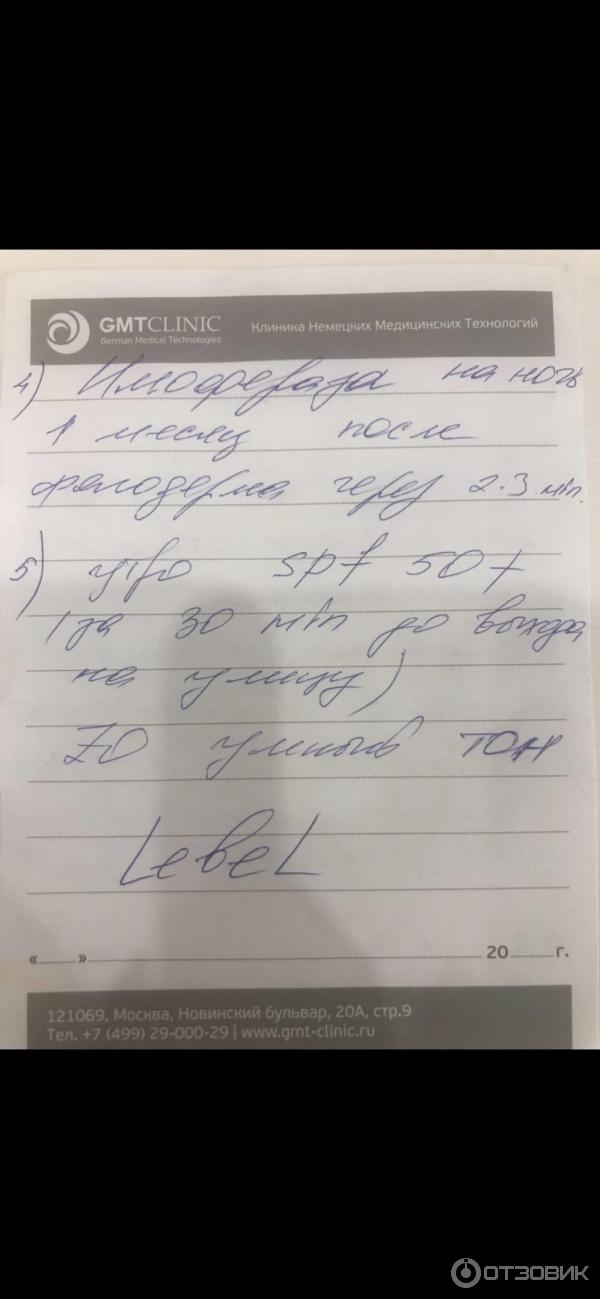 GMTCLINIC
German Medical Technologies
Клиника Немецких Медицинских Технологий
4) Имофераза на ночь
1 месяц после
через 2-3 min.
5) утро spf 50+
(за 30 min до выхода
на улицу)
ZO умный тон
LebeL
«___» 20___ г.
121069, Москва, Новинский бульвар, 20А, стр.9
Тел. +7 (499) 29-000-29 | www.gmt-clinic.ru
ОТЗОВИК